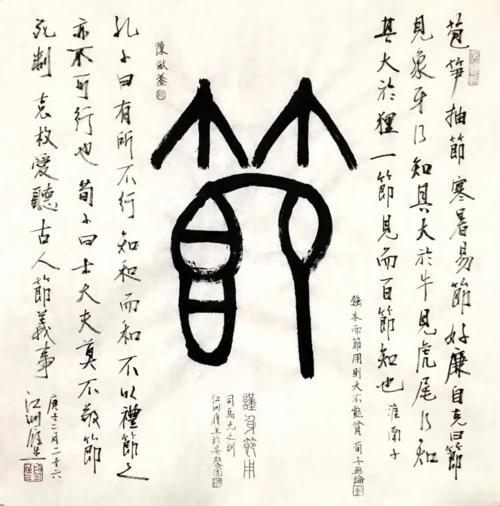 苞笋抽節寒暑易節好廉自克曰節
見象牙乃知其大於牛見虎尾乃知
其大於狸一節見而百節知也 淮南子
強本而節用則天不能貧 荀子天論
節
謹身節用
司馬光之訓
江洲
陳猷釜
孔子曰有所不行知和而和不以禮節之
亦不可行也荀子曰士大夫莫不敬節
死制 袁枚愛聽古人節義事
庚子二月二十六
江洲